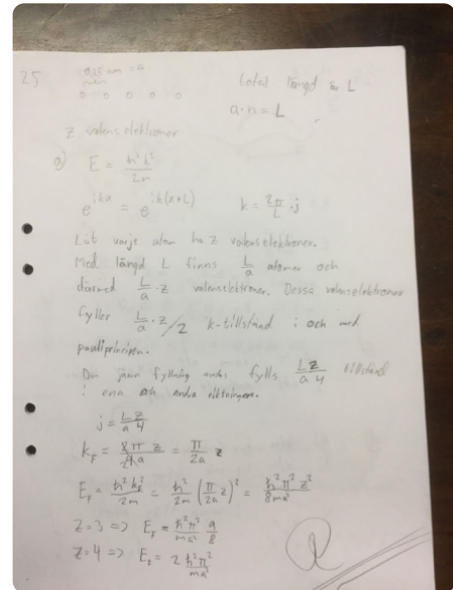 25
0,25 nm = a
total längd är L
o o o o o
a·n = L
z valenselektroner
a) E = ħ²k²/2m
e^{ikx} = e^{ik(x+L)} k = 2π/L · j
Låt varje atom ha z valenselektroner.
Med längd L finns L/a atomer och
därmed L/a · z valenselektroner. Dessa valenselektroner
fyller L/a · z/2 k-tillstånd i och med
pauliprincipen.
Om jämn fyllning fylls Lz/a4 tillstånd
i ena och andra riktningen.
j = Lz/a4
k_F = 2π z/4a = π/2a z
E_F = ħ²k_F²/2m = ħ²/2m (π/2a z)² = ħ²π²z²/8ma²
Z=3 => E_F = ħ²π²/ma² 9/8
Z=4 => E_F = 2 ħ²π²/ma²